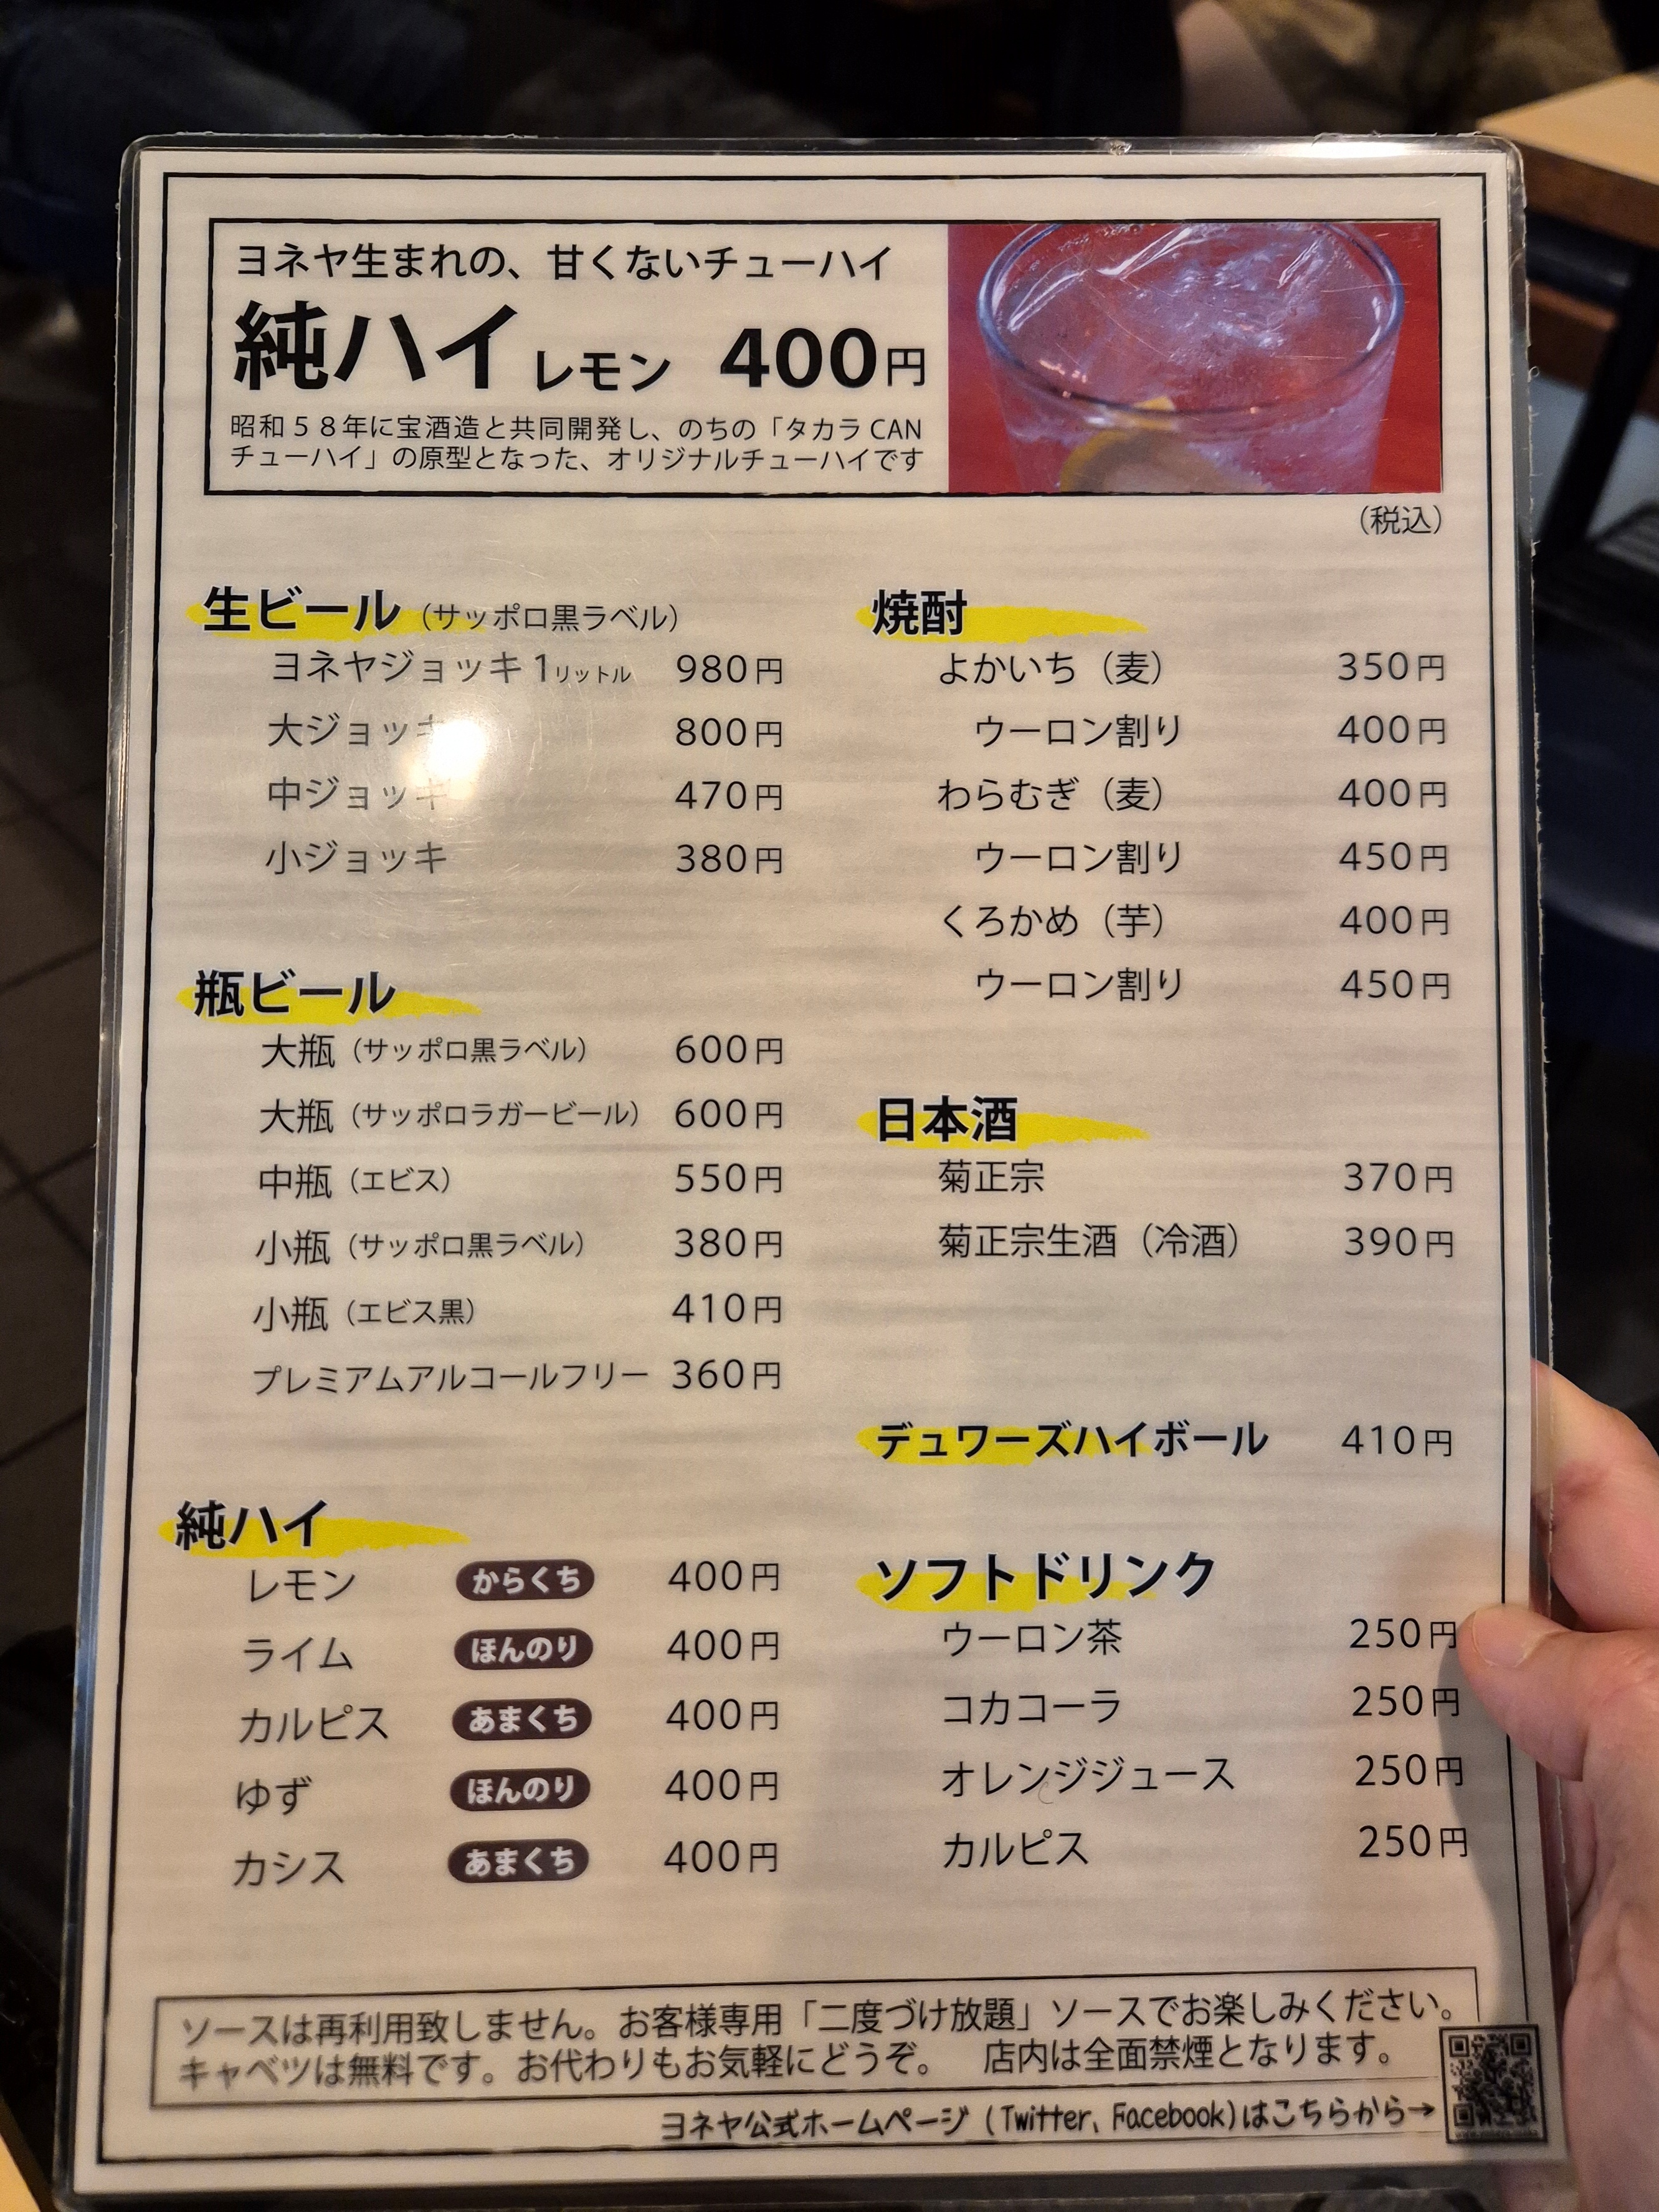 ヨネヤ生まれの、甘くないチューハイ
純ハイ レモン 400円
昭和５８年に宝酒造と共同開発し、のちの「タカラ CAN
チューハイ」の原型となった、オリジナルチューハイです
（税込）
生ビール（サッポロ黒ラベル）
ヨネヤジョッキ 1リットル 980円
大ジョッキ 800円
中ジョッキ 470円
小ジョッキ 380円
瓶ビール
大瓶（サッポロ黒ラベル） 600円
大瓶（サッポロラガービール） 600円
中瓶（エビス） 550円
小瓶（サッポロ黒ラベル） 380円
小瓶（エビス黒） 410円
プレミアムアルコールフリー 360円
純ハイ
レモン からくち 400円
ライム ほんのり 400円
カルピス あまくち 400円
ゆず ほんのり 400円
カシス あまくち 400円
焼酎
よかいち（麦） 350円
ウーロン割り 400円
わらむぎ（麦） 400円
ウーロン割り 450円
くろかめ（芋） 400円
ウーロン割り 450円
日本酒
菊正宗 370円
菊正宗生酒（冷酒） 390円
デュワーズハイボール 410円
ソフトドリンク
ウーロン茶 250円
コカコーラ 250円
オレンジジュース 250円
カルピス 250円
ソースは再利用致しません。お客様専用「二度づけ放題」ソースでお楽しみください。
キャベツは無料です。お代わりもお気軽にどうぞ。 店内は全面禁煙となります。
ヨネヤ公式ホームページ（Twitter、Facebook）はこちらから→